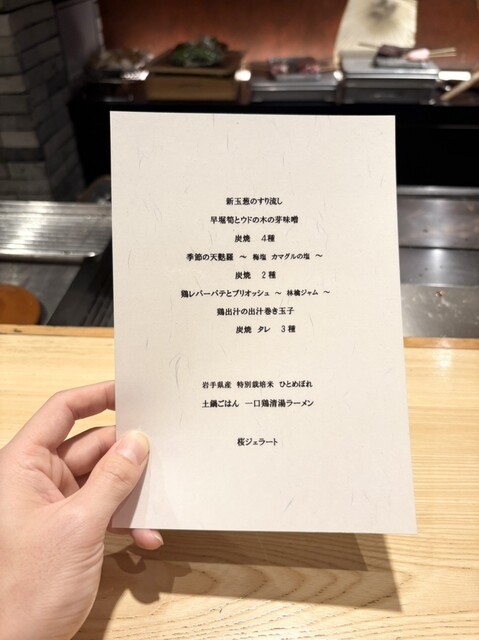 新玉葱のすり流し
早堀筍とウドの木の芽味噌
炭焼　４種
季節の天麩羅 ～ 梅塩 カマグルの塩 ～
炭焼　２種
鶏レバーパテとブリオッシュ ～ 林檎ジャム ～
鶏出汁の出汁巻き玉子
炭焼　タレ　３種
岩手県産 特別栽培米 ひとめぼれ
土鍋ごはん 一口鶏清湯ラーメン
桜ジェラート